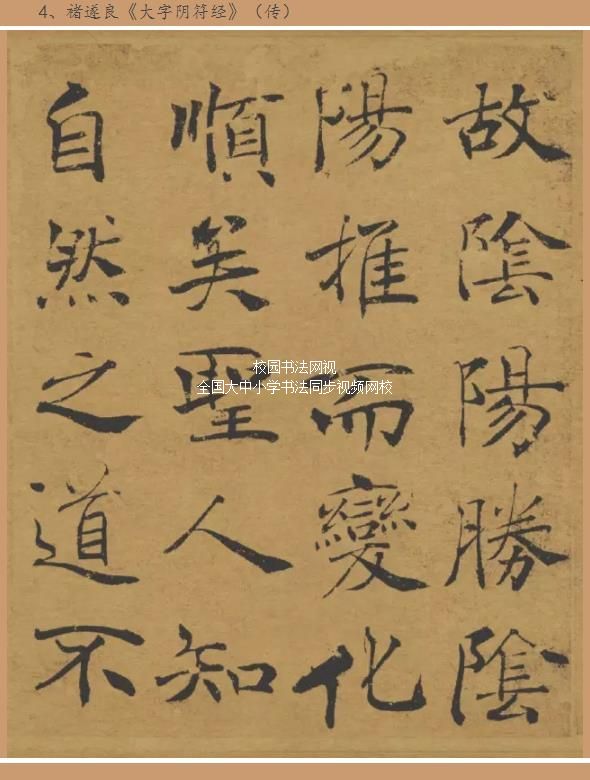 4、褚遂良《大字阴符经》（传）
故陰陽勝陰
陽推而變化
順矣聖人知
自然之道不
校园书法网视
全国大中小学书法同步视频网校